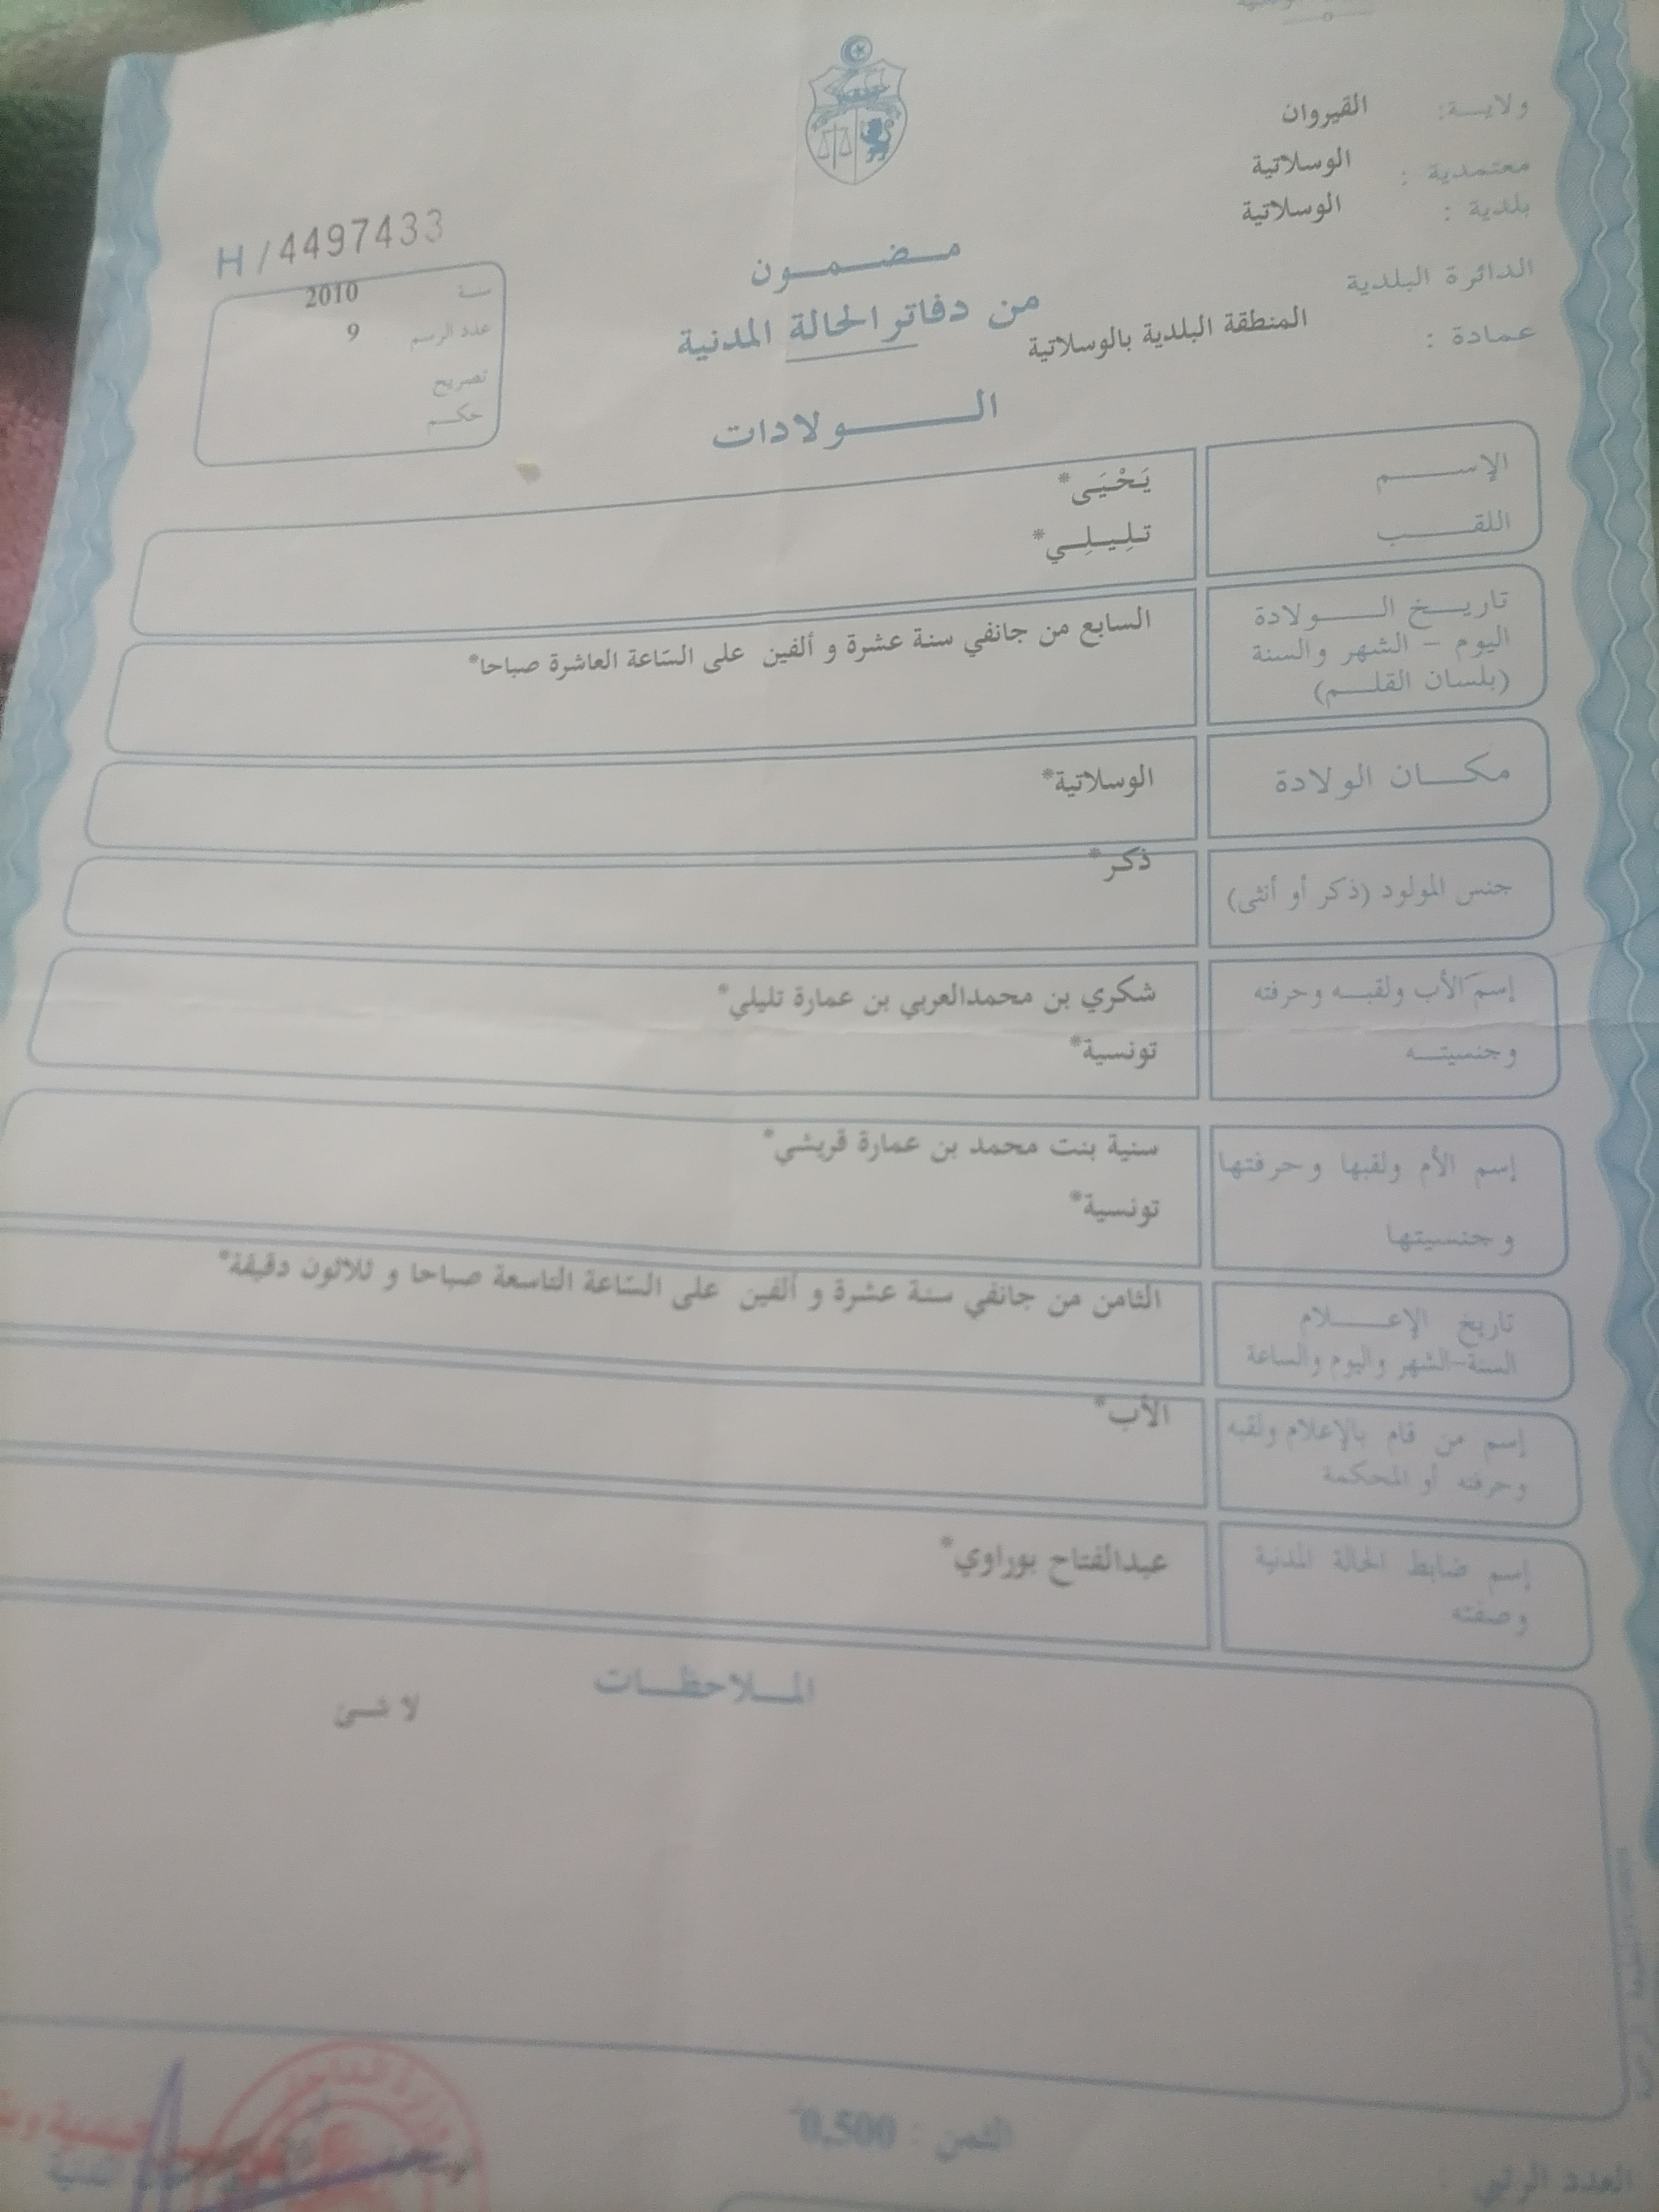 ولايـــة: القيروان
معتمدية : الوسلاتية
بلدية : الوسلاتية
الدائرة البلدية
عمادة : المنطقة البلدية بالوسلاتية
مــضــمــون
من دفاتر الحالة المدنية
الـــولادات
H/4497433
سنة 2010
عدد الرسم 9
تصريح
حكم
الإســـم يَحْيَى*
اللقـــب تلِيلِي*
تاريــخ الــولادة السابع من جانفي سنة عشرة و ألفين على السّاعة العاشرة صباحا*
اليوم – الشهر والسنة
(بلسان القلــم)
مكــان الولادة الوسلاتية*
جنس المولود (ذكر أو أنثى) ذكر*
إسم الأب ولقبــه وحرفته شكري بن محمدالعربي بن عمارة تليلي*
وجنسيتــه تونسية*
إسم الأم ولقبها وحرفتها سنية بنت محمد بن عمارة قريشي*
وجنسيتها تونسية*
تاريخ الإعــلام الثامن من جانفي سنة عشرة و ألفين على السّاعة التاسعة صباحا و ثلاثون دقيقة*
السنة-الشهر واليوم والساعة
إسم من قام بالإعلام ولقبه الأب*
وحرفته أو المحكمة
إسم ضابط الحالة المدنية عبدالفتاح بوراوي*
وصفته
المــلاحظــات
لا شئ
الثمن : 0,500
العدد الرتبي